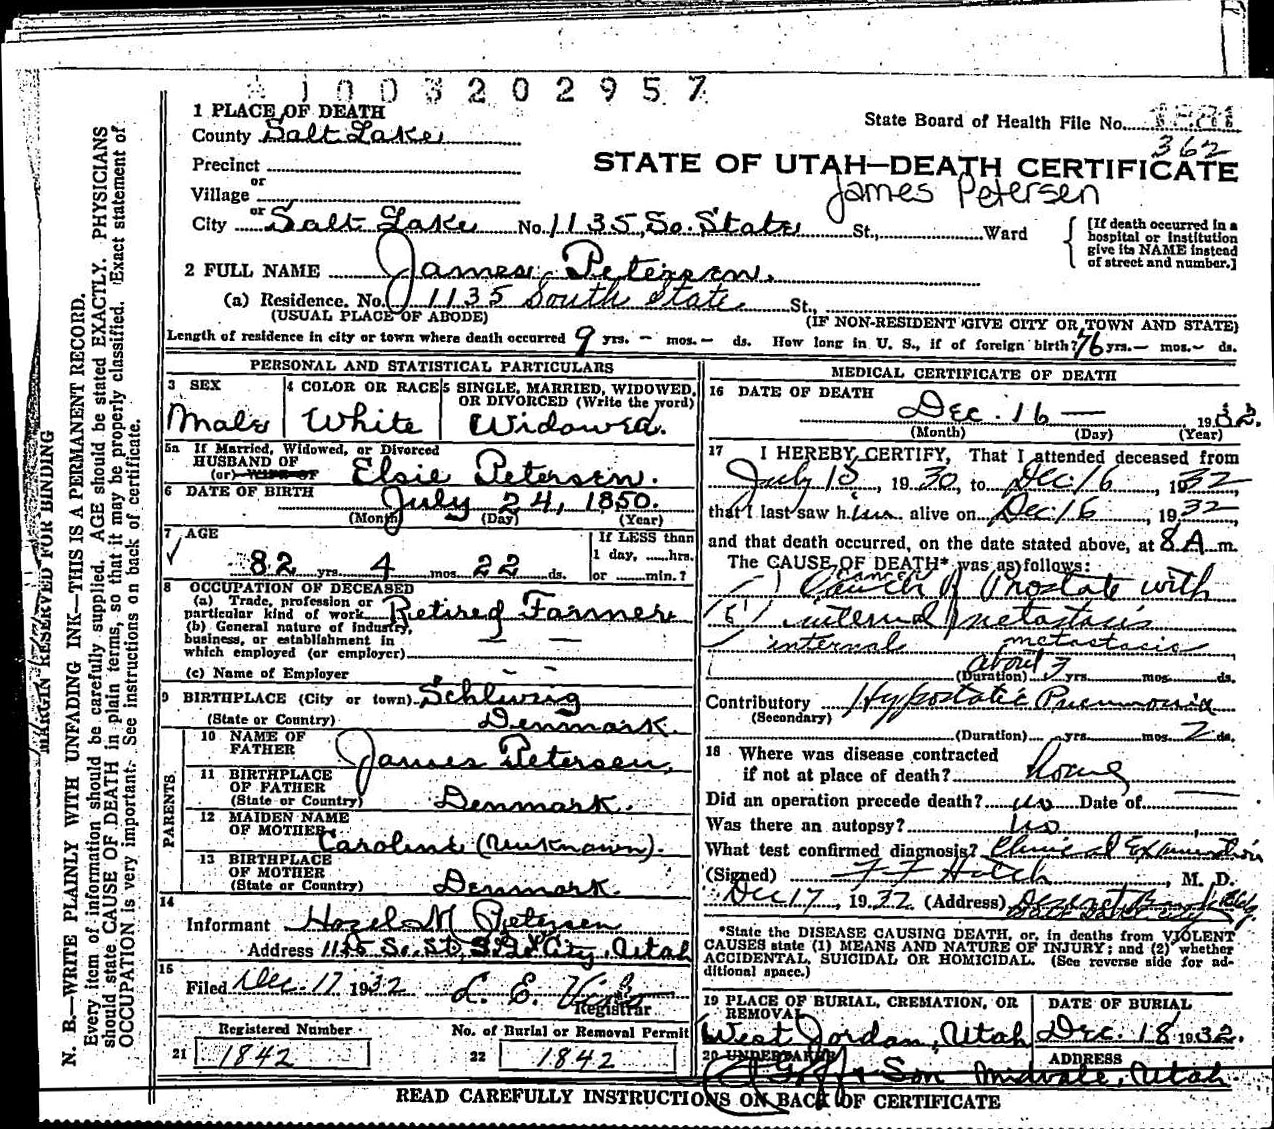 1003202957
1 PLACE OF DEATH
County Salt Lake
State Board of Health File No.
362
Precinct
STATE OF UTAH—DEATH CERTIFICATE
James Petersen
or
Village
or
City Salt Lake No. 1135 So. State St., Ward
[If death occurred in a
hospital or institution
give its NAME instead
of street and number.]
2 FULL NAME James Petersen.
(a) Residence. No. 1135 South State St.,
(USUAL PLACE OF ABODE) (IF NON-RESIDENT GIVE CITY OR TOWN AND STATE)
Length of residence in city or town where death occurred 9 yrs. - mos. - ds. How long in U. S., if of foreign birth? 76 yrs. - mos. - ds.
PERSONAL AND STATISTICAL PARTICULARS
3 SEX
Male
4 COLOR OR RACE
White
5 SINGLE, MARRIED, WIDOWED,
OR DIVORCED (Write the word)
Widowed.
5a If Married, Widowed, or Divorced
HUSBAND OF
(or) WIFE OF Elsie Petersen.
6 DATE OF BIRTH July 24, 1850.
(Month) (Day) (Year)
7 AGE
82 yrs. 4 mos. 22 ds.
If LESS than
1 day, ......hrs.
or ......min.?
8 OCCUPATION OF DECEASED
(a) Trade, profession or
particular kind of work Retired Farmer
(b) General nature of industry,
business, or establishment in
which employed (or employer) — —
(c) Name of Employer - -
9 BIRTHPLACE (City or town) Schlwig
(State or Country) Denmark.
PARENTS
10 NAME OF
FATHER James Petersen,
11 BIRTHPLACE
OF FATHER
(State or Country) Denmark.
12 MAIDEN NAME
OF MOTHER Caroline (Unknown).
13 BIRTHPLACE
OF MOTHER
(State or Country) Denmark.
14
Informant Hazel M Petersen
Address So. St, S. L. City, Utah
15
Filed Dec. 17 1932 L. E.
Registrar
Registered Number
21 1842
No. of Burial or Removal Permit
22 1842
MEDICAL CERTIFICATE OF DEATH
16 DATE OF DEATH
Dec. 16 — 1932.
(Month) (Day) (Year)
17 I HEREBY CERTIFY, That I attended deceased from
July 15, 1930, to Dec 16, 1932,
that I last saw him alive on Dec 16, 1932,
and that death occurred, on the date stated above, at 8 A m.
The CAUSE OF DEATH* was as follows:
cancer
Cancer of Prostate with
internal metastasis
internal metastasis
about
(Duration) 3 yrs. mos. ds.
Contributory Hypostatic Pneumonia
(Secondary)
(Duration) yrs. mos. 2 ds.
18 Where was disease contracted
if not at place of death? home
Did an operation precede death? no Date of
Was there an autopsy? no
What test confirmed diagnosis? Clinical Examination
(Signed) F F Hatch, M. D.
Dec 17, 1932 (Address) Deseret Bank Bldg.
Salt Lake City
*State the DISEASE CAUSING DEATH, or, in deaths from VIOLENT
CAUSES state (1) MEANS AND NATURE OF INJURY; and (2) whether
ACCIDENTAL, SUICIDAL OR HOMICIDAL. (See reverse side for ad-
ditional space.)
19 PLACE OF BURIAL, CREMATION, OR
REMOVAL
West Jordan, Utah
DATE OF BURIAL
Dec. 18 1932.
20 UNDERTAKER
Goff & Son
ADDRESS
Midvale, Utah
READ CAREFULLY INSTRUCTIONS ON BACK OF CERTIFICATE
MARGIN RESERVED FOR BINDING
N. B.—WRITE PLAINLY WITH UNFADING INK—THIS IS A PERMANENT RECORD.
Every item of information should be carefully supplied. AGE should be stated EXACTLY. PHYSICIANS
should state CAUSE OF DEATH in plain terms, so that it may be properly classified. Exact statement of
OCCUPATION is very important. See instructions on back of certificate.